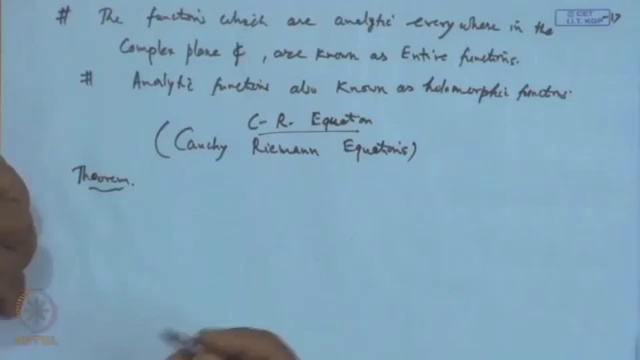 # The functions which are analytic everywhere in the
Complex plane ₵, are known as Entire functions.
# Analytic functions also known as holomorphic functions
C-R. Equation
(Cauchy Riemann Equations)
Theorem.
© CET
I.I.T. KGP
NPTEL